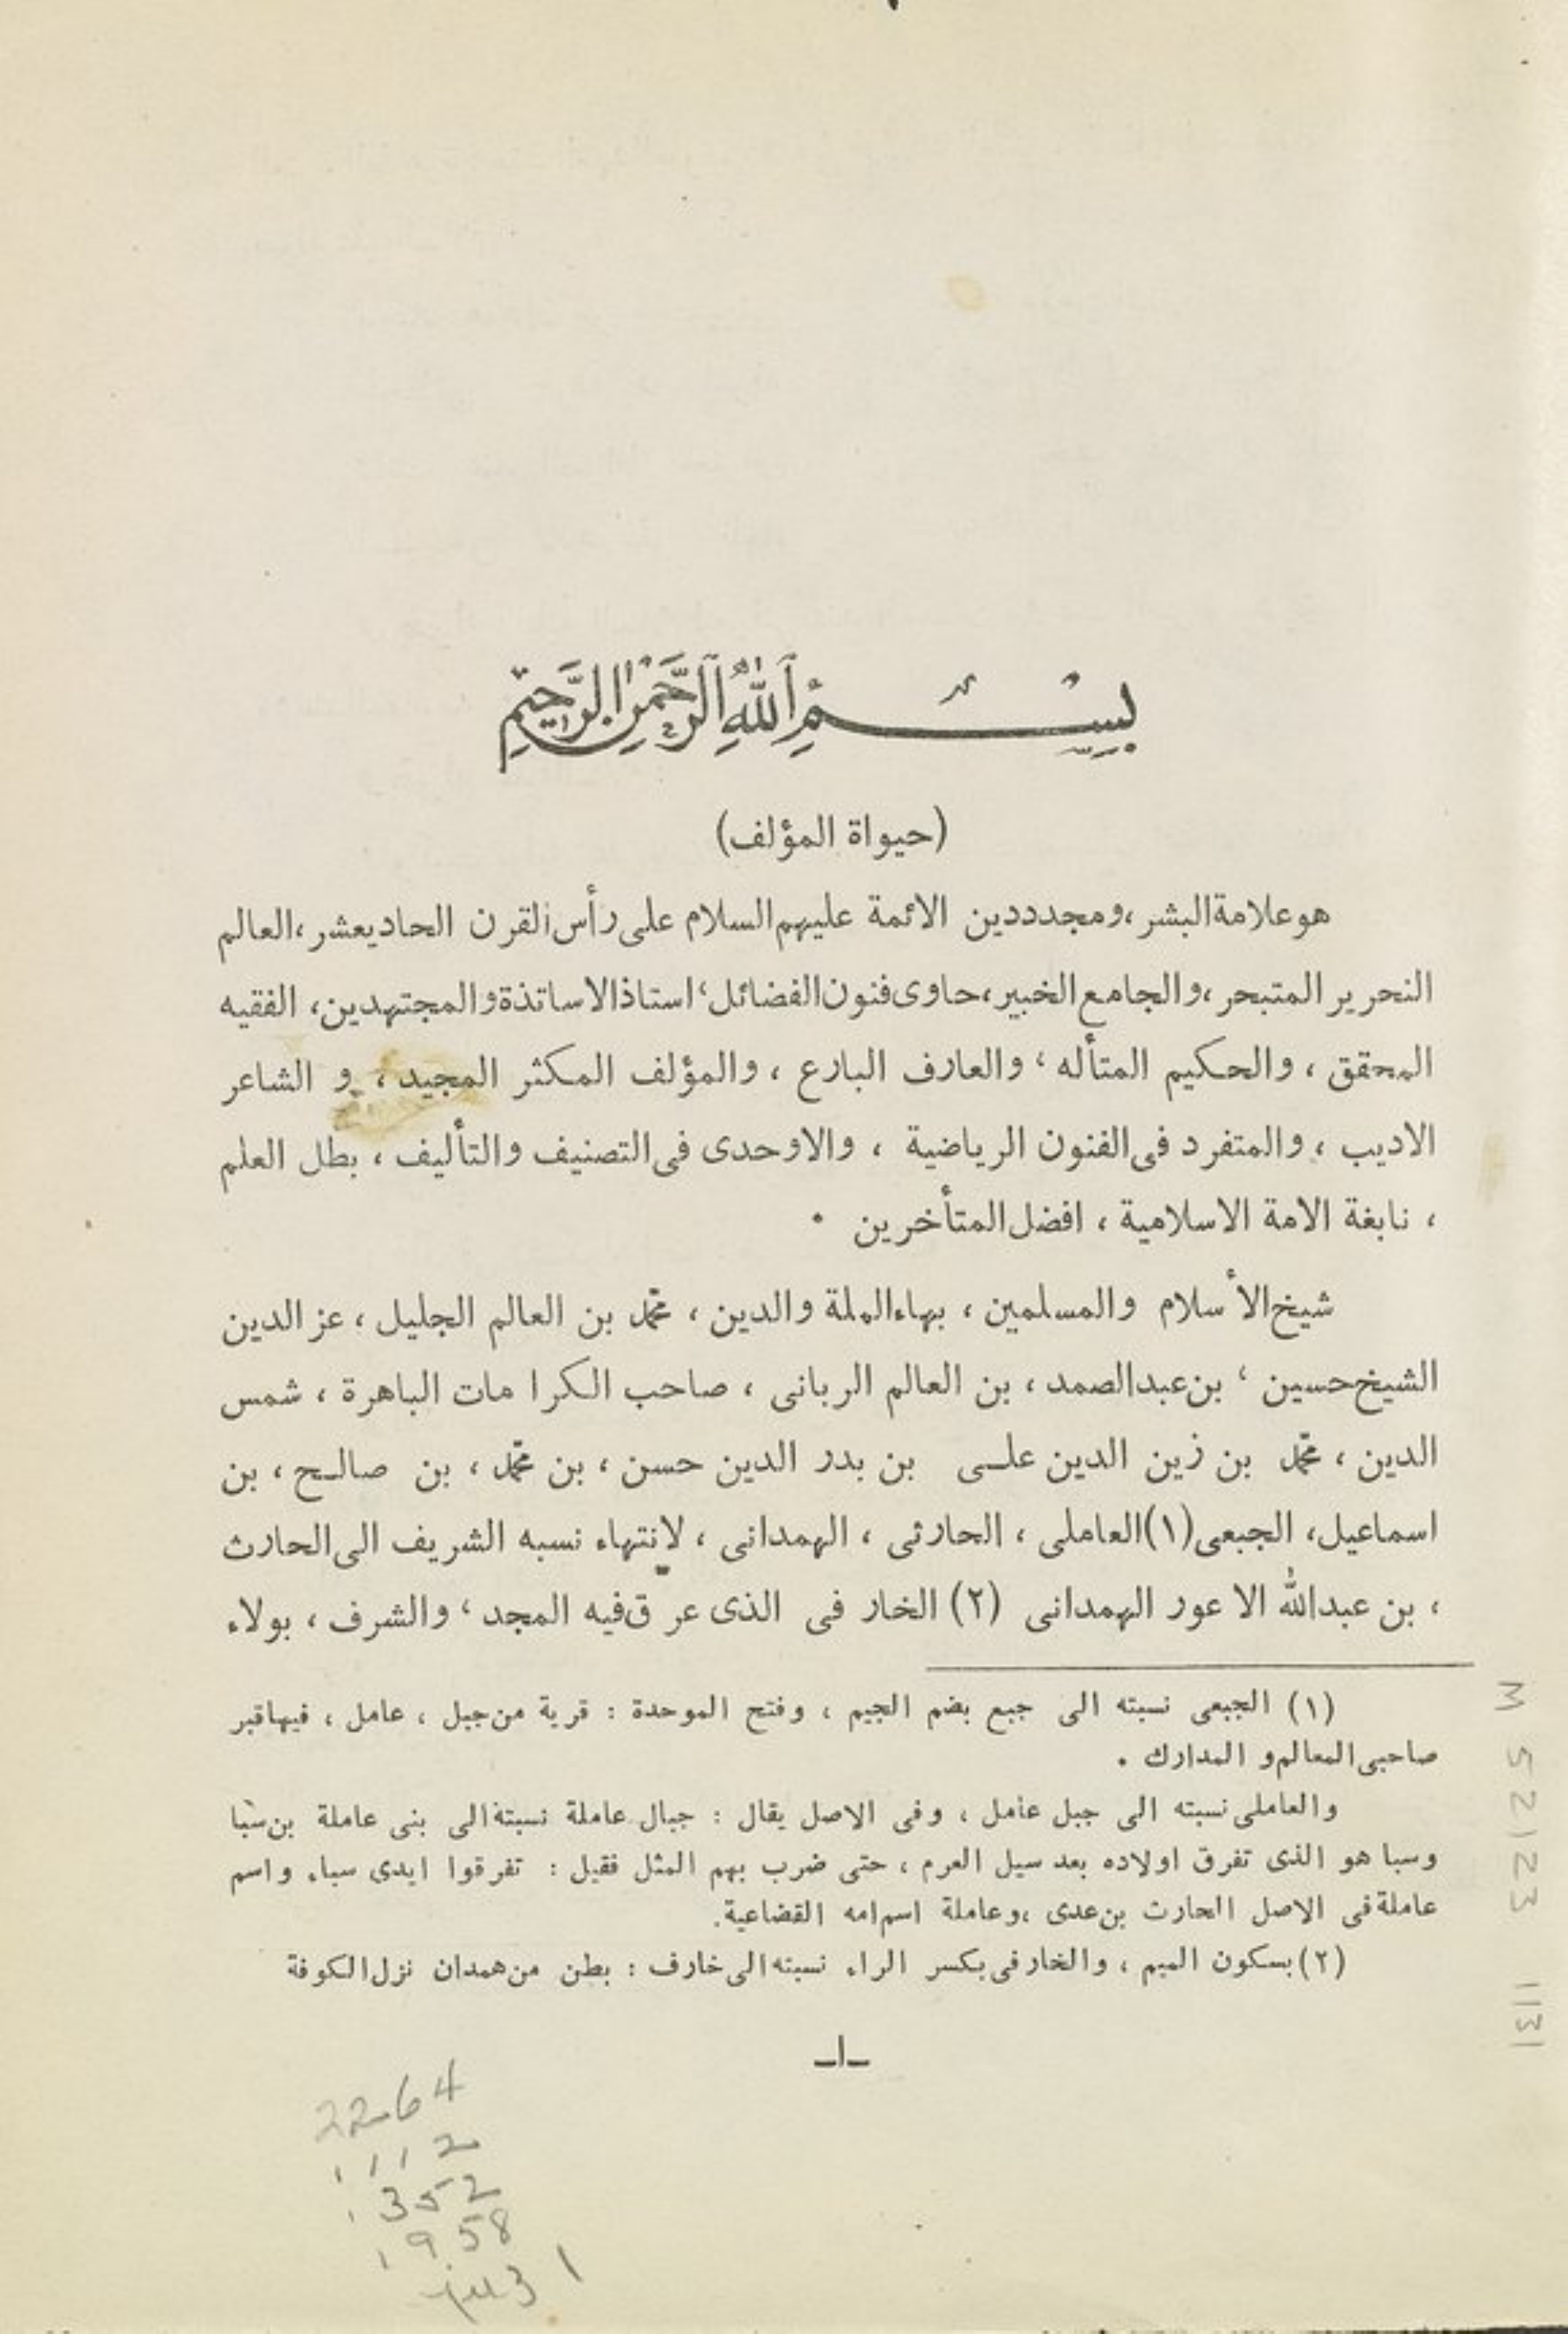 بِسْمِ اللهِ الرَّحْمنِ الرَّحِيمِ
(حيواة المؤلف)
هو علامة البشر ، ومجدددين الائمة عليهم السلام على رأس القرن الحاديعشر ، العالم
النحرير المتبحر ، والجامع الخبير ، حاوى فنون الفضائل ، استاذ الاساتذة والمجتهدين ، الفقيه
المحقق ، والحكيم المتأله ، والعارف البارع ، والمؤلف المكثر المجيد ، و الشاعر
الاديب ، والمتفرد فى الفنون الرياضية ، والاوحدى فى التصنيف والتأليف ، بطل العلم
، نابغة الامة الاسلامية ، افضل المتأخرين .
شيخ الأسلام والمسلمين ، بهاء الملة والدين ، محمد بن العالم الجليل ، عز الدين
الشيخ حسين ، بن عبد الصمد ، بن العالم الربانى ، صاحب الكرا مات الباهرة ، شمس
الدين ، محمد بن زين الدين علـى بن بدر الدين حسن ، بن محمد ، بن صالـح ، بن
اسماعيل ، الجبعى (١) العاملى ، الحارثى ، الهمدانى ، لإنتهاء نسبه الشريف الى الحارث
، بن عبدالله الا عور الهمدانى (٢) الخار فى الذى عر ق فيه المجد ، والشرف ، بولاء
(١) الجبعى نسبته الى جبع بضم الجيم ، وفتح الموحدة : قرية من جبل ، عامل ، فيها قبر
صاحبى المعالم و المدارك .
والعاملى نسبته الى جبل عامل ، وفى الاصل يقال : جبال عاملة نسبتة الى بنى عاملة بن سبا
وسبا هو الذى تفرق اولاده بعد سيل العرم ، حتى ضرب بهم المثل فقيل : تفرقوا ايدى سباء واسم
عاملة فى الاصل الحارث بن عدى ، وعاملة اسم امه القضاعية .
(٢) بسكون الميم ، والخار فى بكسر الراء نسبته الى خارف : بطن من همدان نزل الكوفة
ـ١ـ
2264
.112
.352
.958